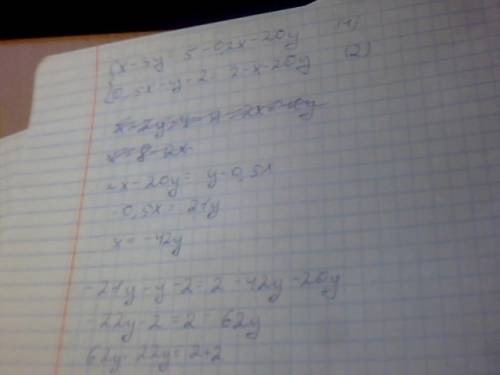 {x-5y=5-02x-20y (1)
{0,5x-y-2=2-x-20y (2)
x=8-2x
-x-20y=y-0,5x
-0,5x=21y
x=-42y
-21y-y-2=2-42y-20y
-22y-2=2-62y
62y-22y=2+2